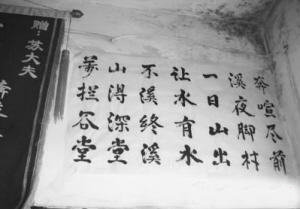 赠：苏大夫
萬山不让一溪奔
拦得溪水日夜喧
谷深终有山脚尽
堂堂溪水出村前